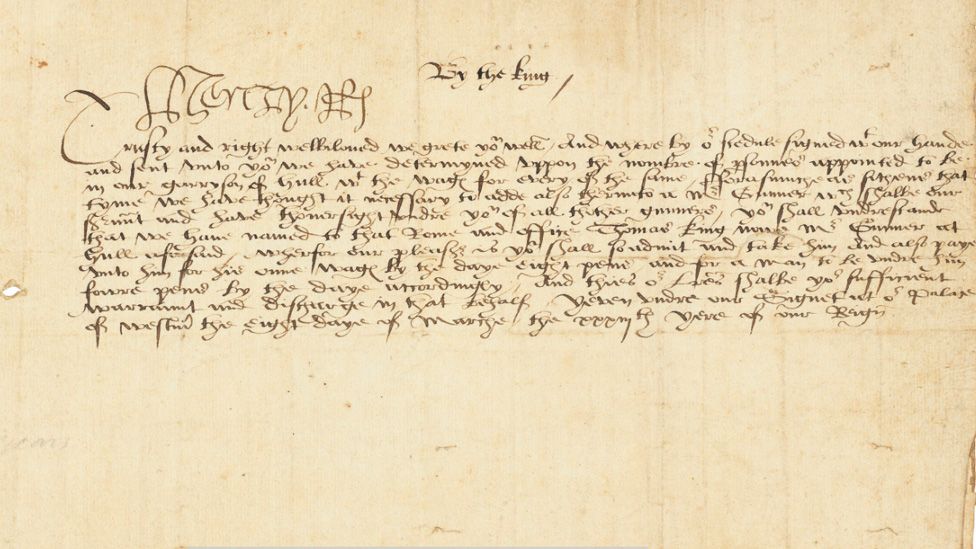 By the king
Henry R
Trusty and right welbiloved we grete yoʳ well. And where by oʳ scedule signed wᵗ our hande
and sent unto yoᵘ we have determyned uppon the nombre of psonnes appointed to be
in our garryson of Hull wᵗ the wagℯ for every of the same, forasmuche as sithens that
tyme we have thought it necessary to adde also therunto a Mʳ Gunner wᶜʰ shalbe our
sʳvᵃnt and have thoversight undre yoᵘ of all thother gunners, yoᵘ shall undrestande
that we have named to that Rome and office Thomas King nowe Mʳ Gunner at
Hull aforsaid, wherfor our pleasʳ is yoᵘ shall so admit and take him And also paye
unto him for his owne wagℯ by the daye eight pens and for a man to be undre him
fowre pens by the daye accordingly, And thies oʳ lres shalbe yoʳ sufficient
warraunt and discharge in that behalf, Yeven undre our Signet at oʳ Palace
of westmʳ the eight daye of Marche, the xxxiiiᵗʰ yere of our Reign
years